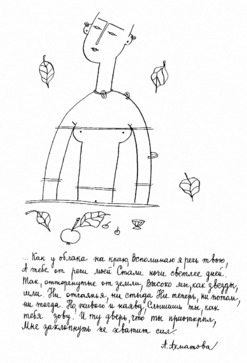 ...Как у облака на краю, Вспоминаю я речь твою,
А тебе от речи моей Стали ночи светлее дней.
Так, отторгнутые от земли, Высоко мы, как звезды,
шли. Ни отчаянья, ни стыда Ни теперь, ни потом,
ни тогда. Но живого и наяву, Слышишь ты, как
тебя зову. И ту дверь, что ты приоткрыл,
Мне захлопнуть не хватит сил.
А. Ахматова